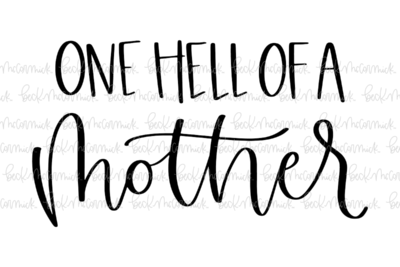 ONE HELL OF A
Mother